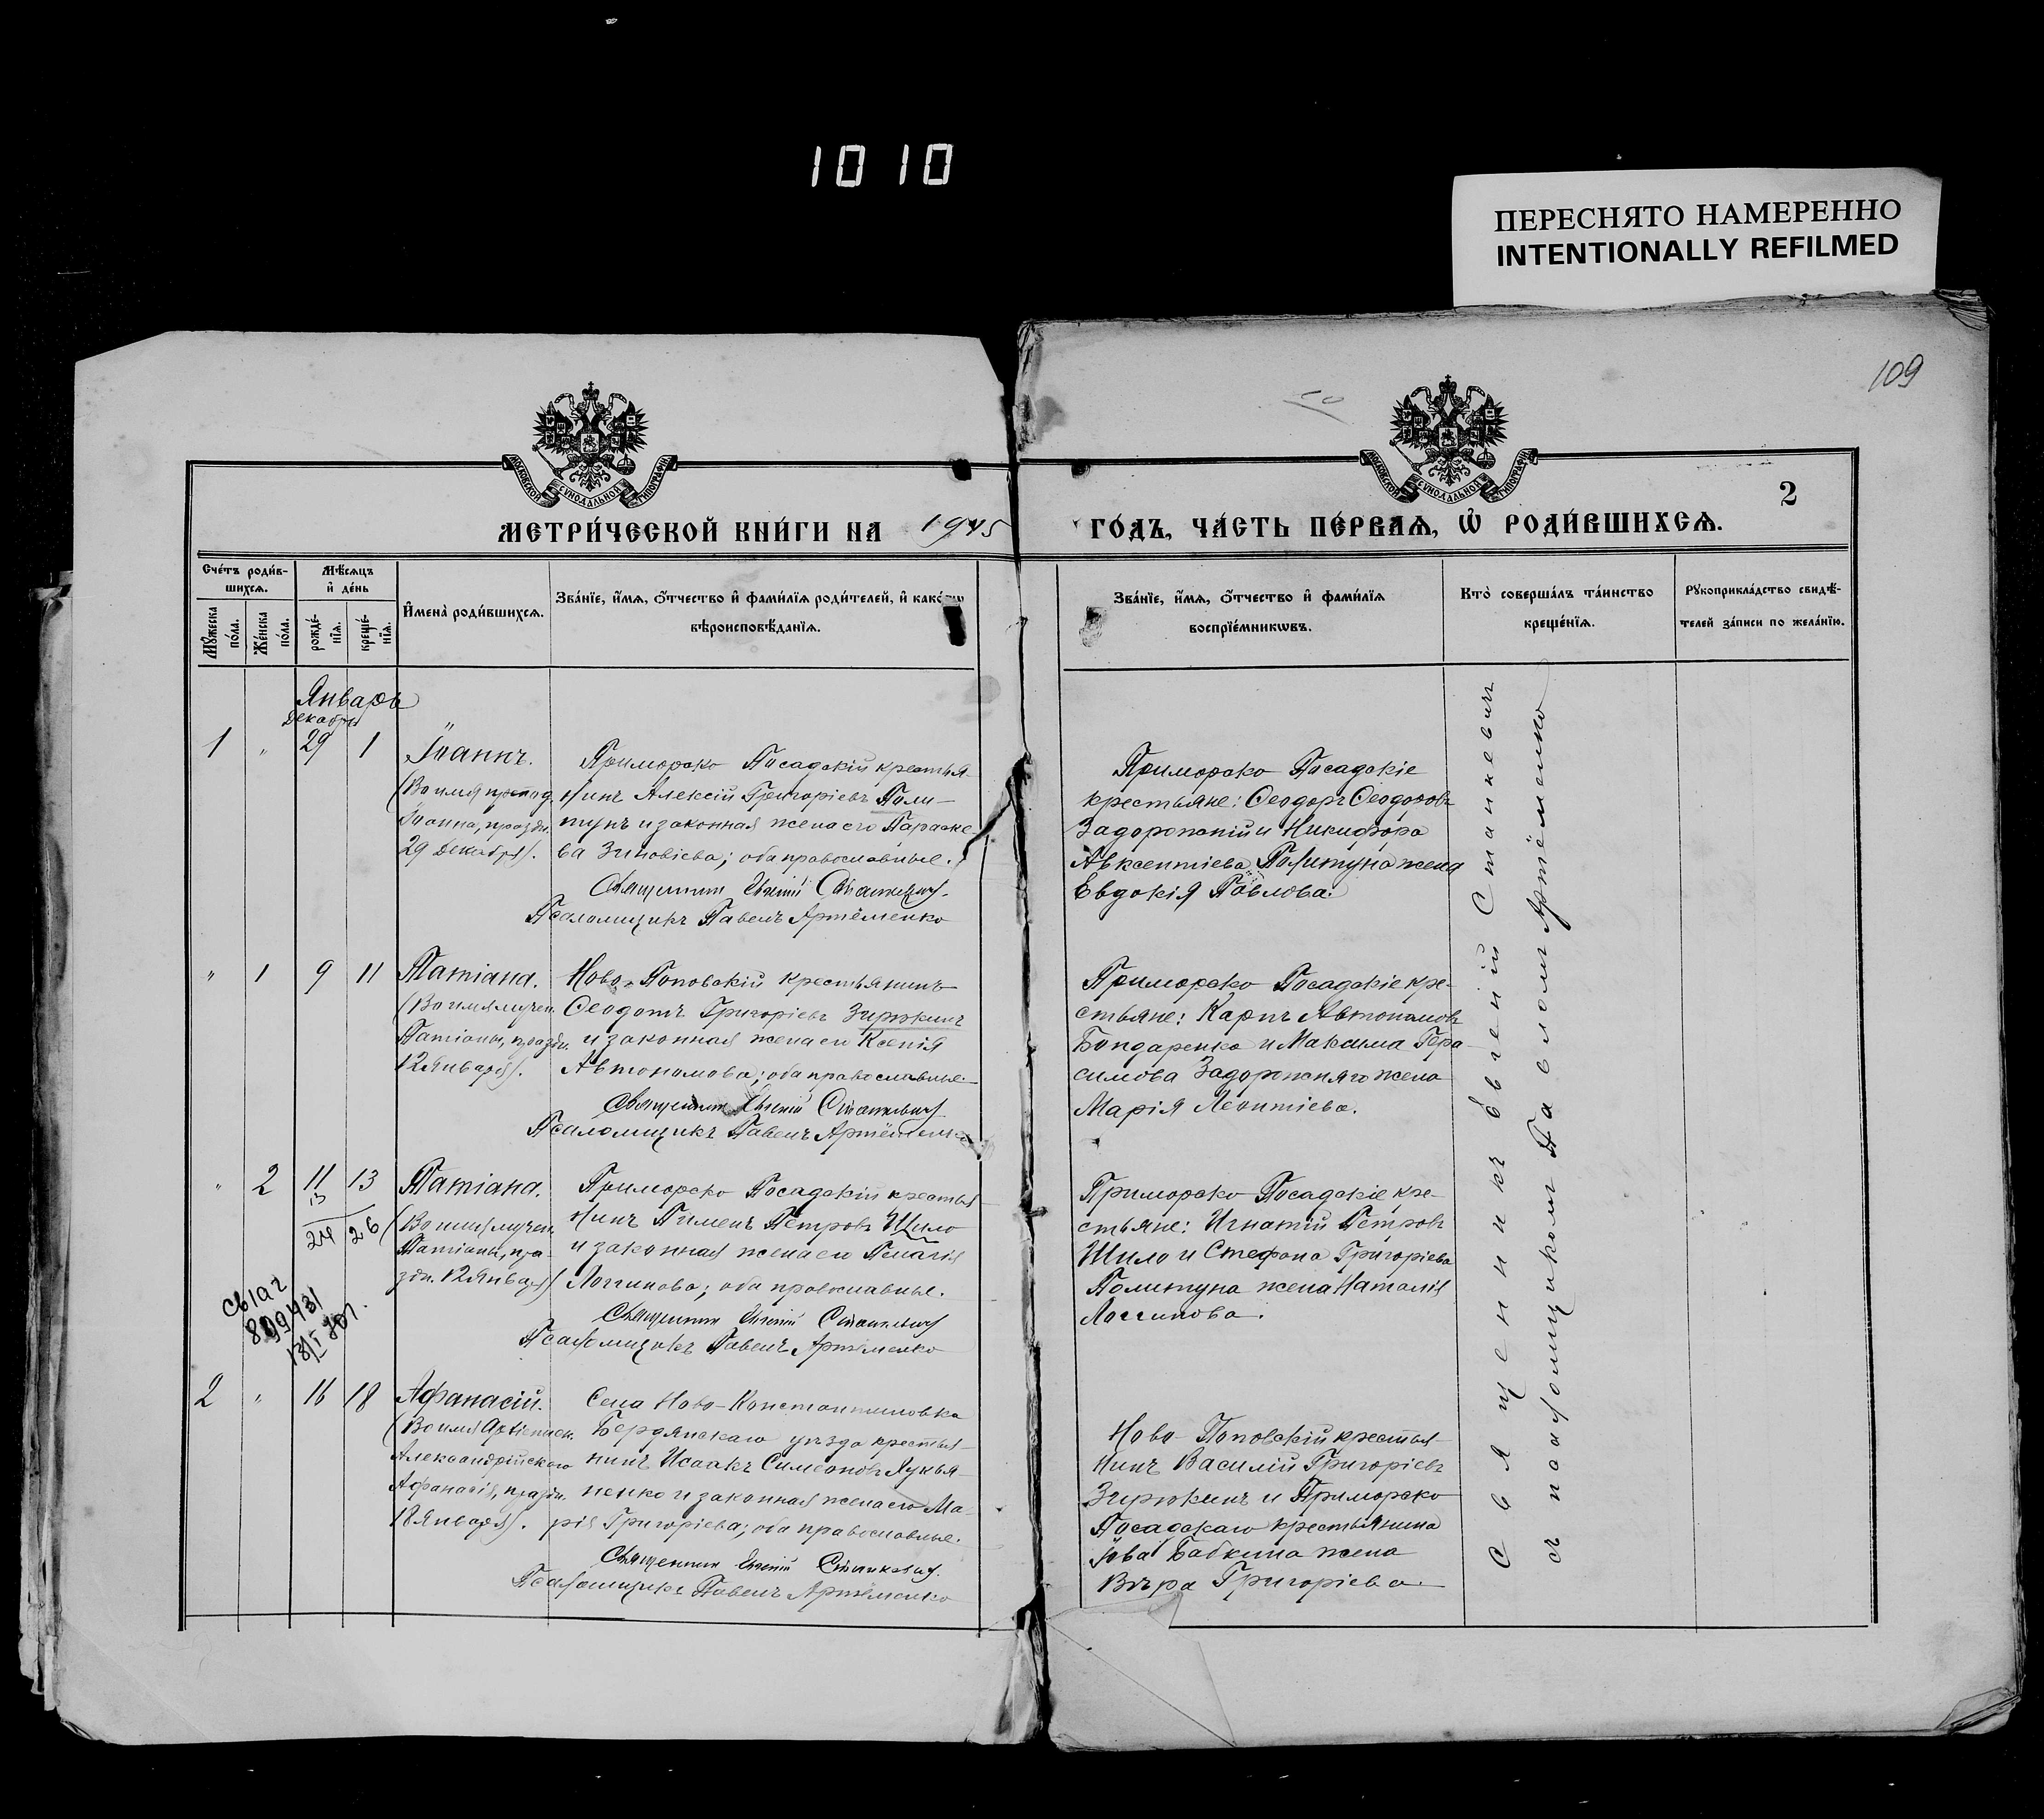 1010
ПЕРЕСНЯТО НАМЕРЕННО
INTENTIONALLY REFILMED
109
МОСКОВСКОЙ СѴНОДАЛЬНОЙ ТИПОГРАФІИ
МОСКОВСКОЙ СѴНОДАЛЬНОЙ ТИПОГРАФІИ
2
МЕТРИ́ЧЕСКОЙ КНИ́ГИ НА 19
ГО́ДЪ, ЧА́СТЬ ПЕ́РВАѦ, Ѡ҆ РОДИ́ВШИХСѦ.
Сче́тъ роди́в-
шихсѧ.
Мꙋ́жеска по́ла.
Же́нска по́ла.
Мѣ́сѧцъ
и҆ де́нь
рожде́-нїѧ.
креще́-нїѧ.
И҆мена̀ роди́вшихсѧ.
Зва́нїе, и҆́мѧ, ѻ҆́тчество и҆ фами́лїѧ роди́телей, и҆
вѣроисповѣ́данїѧ.
Зва́нїе, и҆́мѧ, ѻ҆́тчество и҆ фами́лїѧ
воспрїе́мникѡвъ.
Кто̀ соверша́лъ та́инство
креще́нїѧ.
Рꙋкоприкла́дство свидѣ́-
телей за́писи по жела́нїю.
Январь
Декабря
1 " 29 1
Іоаннъ.
(Во имя препод.
Іоанна, праздн.
29 Декабря).
Приморско Посадскій крестья-
нинъ Алексій Григоріевъ Поли-
тунъ и законная жена его Параске-
ва Зиновіева; оба православные.
Священникъ Евгеній Станкевичъ
Псаломщикъ Павелъ Артёменко
Приморско Посадскіе
крестьяне: Ѳеодоръ Ѳеодоровъ
Задорожній и Никифора
Авксентіева Политуна жена
Евдокія Павлова.
" 1 9 11
Татіана.
(Во имя мучен.
Татіаны, праздн.
12 Января).
Ново-Поповскій крестьянинъ
Ѳеодотъ Григоріевъ Зирюкинъ
и законная жена его Ксенія
Автономова; оба православные.
Священникъ Евгеній Станкевичъ
Псаломщикъ Павелъ Артёменко
Приморско Посадскіе кре-
стьяне: Карпъ Автономовъ
Бондаренко и Максима Гера-
симова Задорожняго жена
Марія Леонтіева.
" 2 11 13
13
24 26
Татіана.
(Во имя мучен.
Татіаны, пра-
здн. 12 Января)
Приморско Посадскій крестья-
нинъ Пименъ Петровъ Шило
и законная жена его Пелагія
Логгинова; оба православные.
Священникъ Евгеній Станкевичъ
Псаломщикъ Павелъ Артёменко
Приморско Посадскіе кре-
стьяне: Игнатій Петровъ
Шило и Стефана Григоріева
Политуна жена Наталія
Логгинова.
2 " 16 18
Афанасій.
(Во имя Архіеписк.
Александрійскаго
Афанасія, праздн.
18 Января).
Села Ново-Константиновка
Бердянскаго уѣзда крестья-
нинъ Исаакъ Симеоновъ Лукья-
ненко и законная жена его Ма-
рія Григоріева; оба православные.
Священникъ Евгеній Станкевичъ
Псаломщикъ Павелъ Артёменко
Ново-Поповскій крестья-
нинъ Василій Григоріевъ
Зирюкинъ и Приморско
Посадскаго крестьянина
Іова Бабкина жена
Вѣра Григоріева.
Священникъ Евгеній Станкевичъ
съ псаломщикомъ Павломъ Артёменко